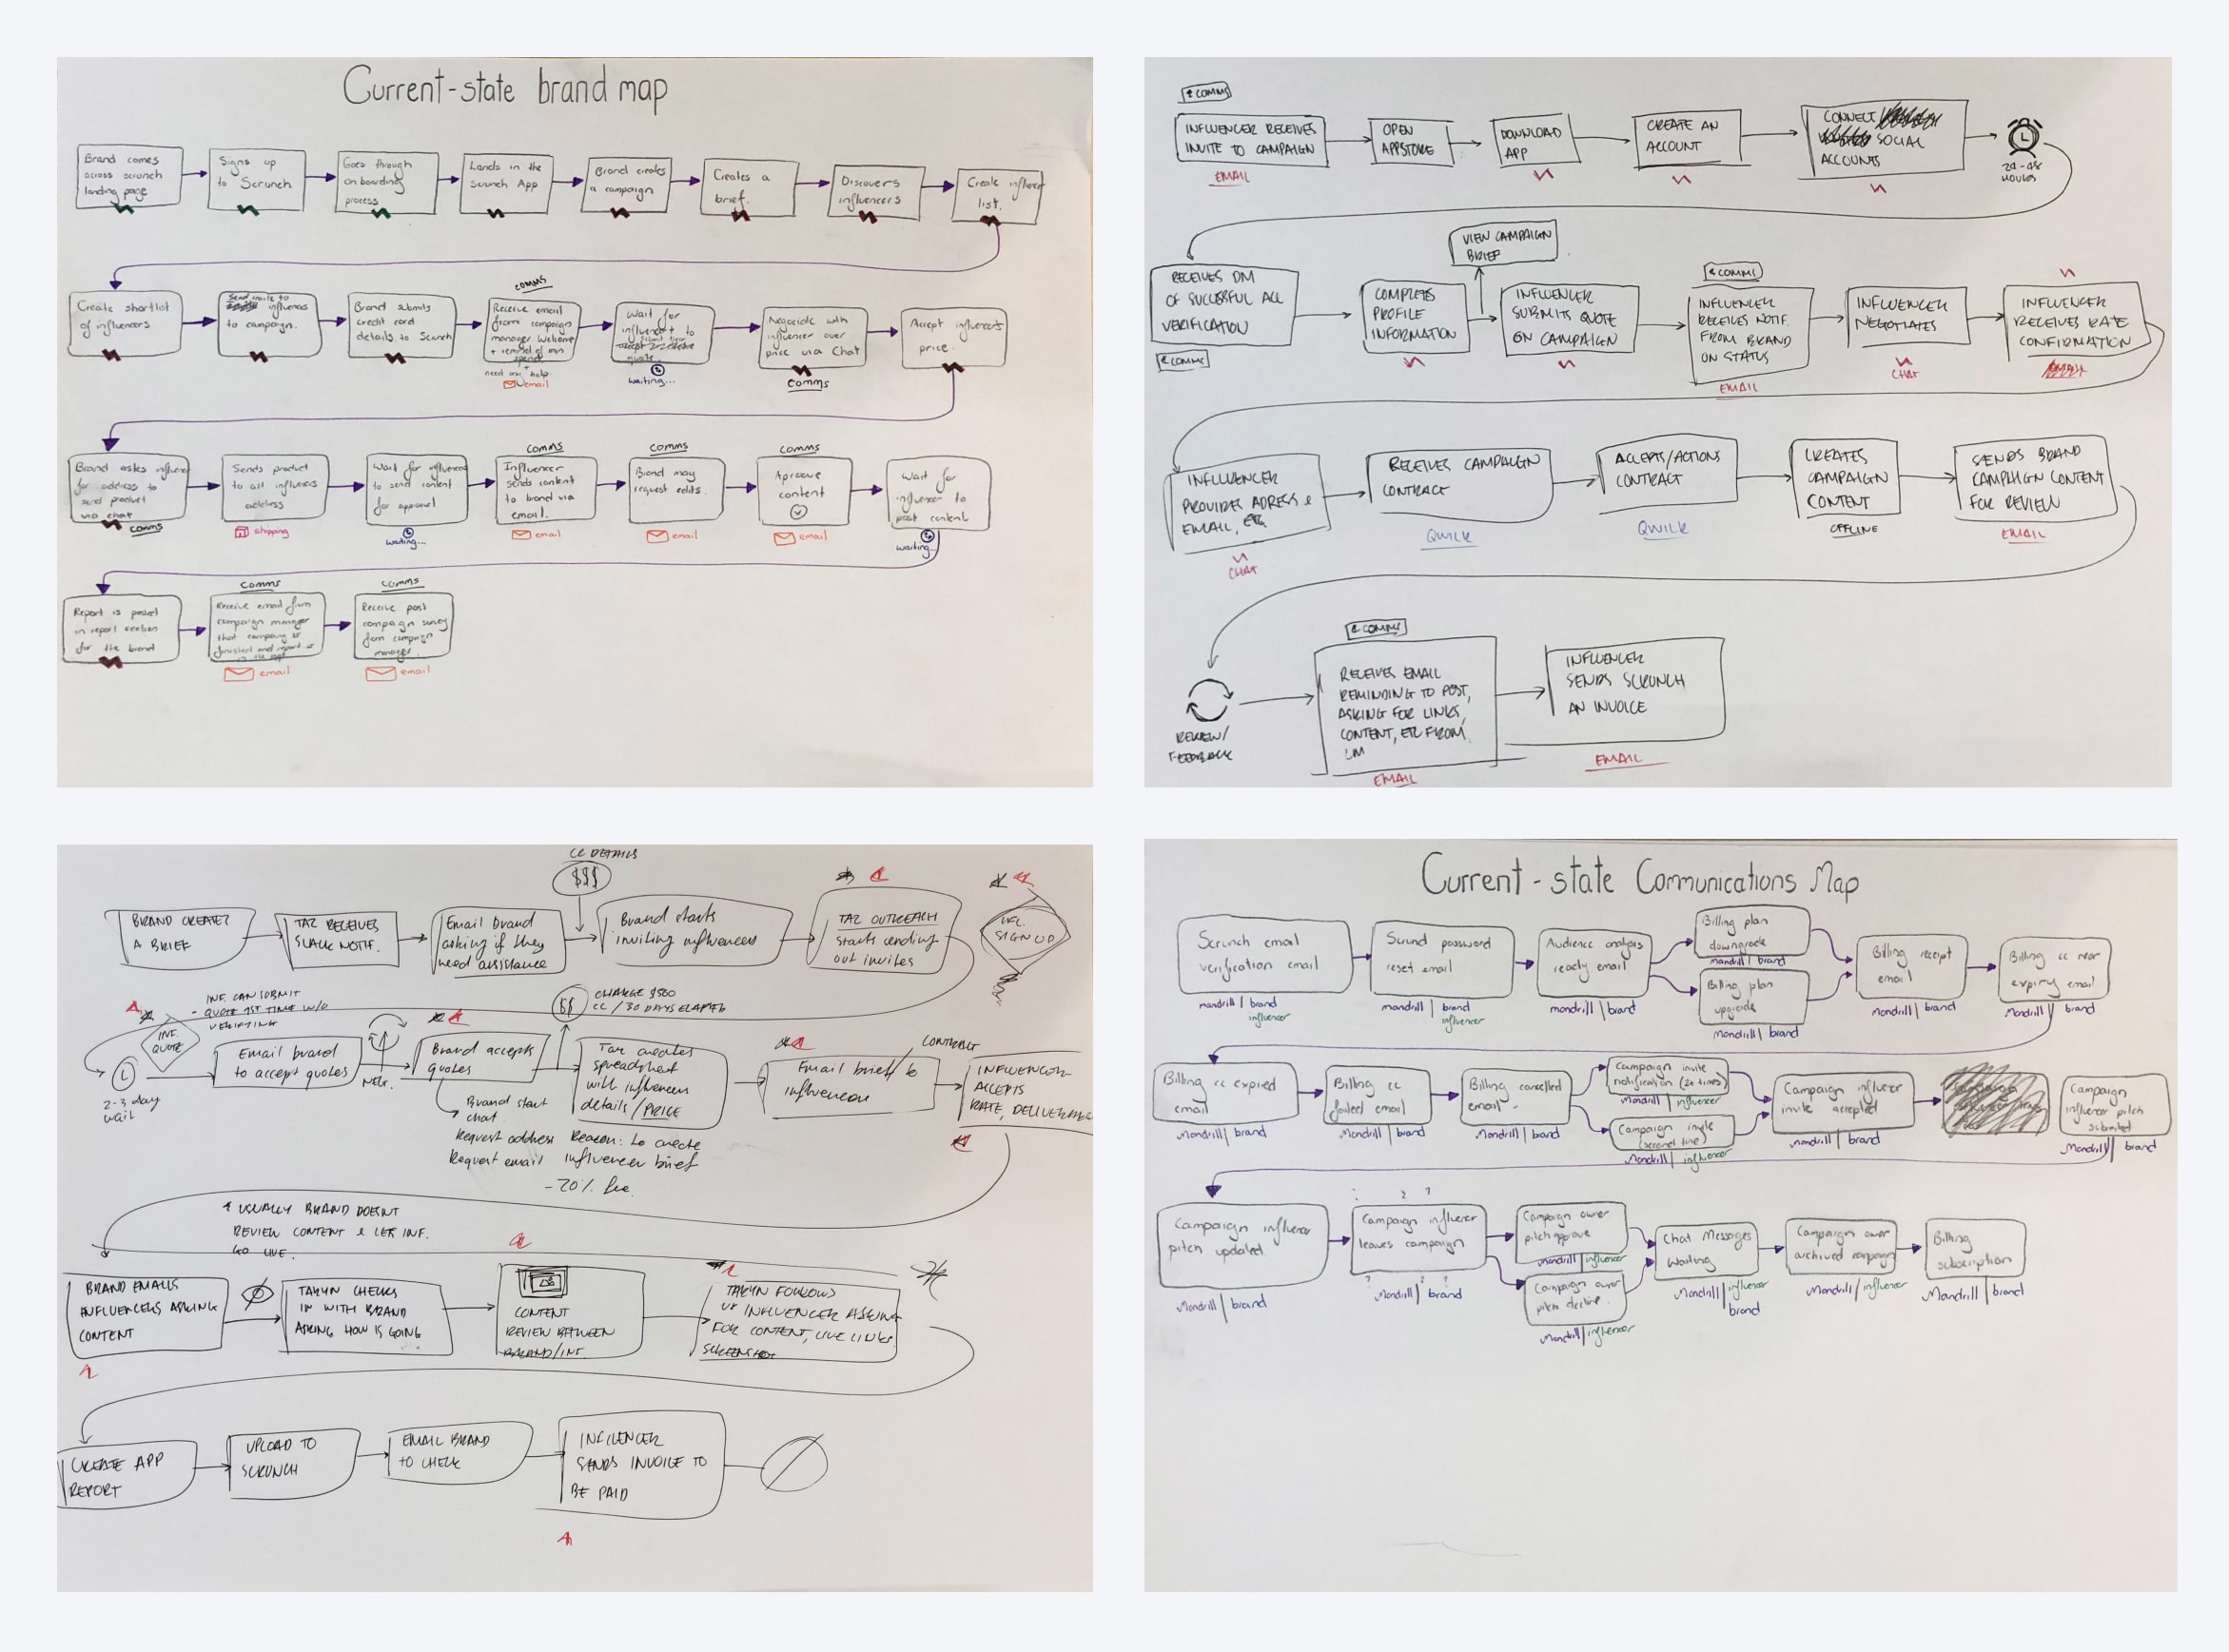 Current-state brand map
Brand comes
across scrunch
landing page
Signs up
to Scrunch
Goes through
onboarding
process
Lands in the
Scrunch App
Brand creates
a campaign
Creates a
brief.
Discovers
influencers
Create influencer
list.
Create shortlist
of influencers
Send invite to
influencers
to campaign.
Brand submits
credit card
details to Scrunch
comms
Receive email
from campaign
manager Welcome
+ reminder of min
spend +
need any help.
email
Wait for
influencer to
quote
waiting...
Negociate with
influencer over
price via Chat
comms
Accept influencers
price.
Brand asks influencer
for address to
send product
via chat
comms
Sends product
to all influencers
address
shipping
Wait for influencer
to send content
for approval
waiting...
comms
Influencer
sends content
to brand via
email.
email
comms
Brand may
request edits.
email
comms
Aproove
content
email
Wait for
influencer to
post content
waiting...
Report is posted
in report section
for the brand
comms
Receive email from
campaign manager
that campaign is
finished and report is
in the app
email
comms
Receive post
campaign survey
from campaign
manager.
email
& COMMS
INFLUENCER RECEIVES
INVITE TO CAMPAIGN
EMAIL
OPEN
APPSTORE
DOWNLOAD
APP
CREATE AN
ACCOUNT
CONNECT
SOCIAL
ACCOUNTS
24-48
HOURS
RECEIVES DM
OF SUCCESSFUL ACC
VERIFICATION
& COMMS
COMPLETES
PROFILE
INFORMATION
VIEW CAMPAIGN
BRIEF
INFLUENCER
SUBMITS QUOTE
ON CAMPAIGN
& COMMS
INFLUENCER
RECEIVES NOTIF.
FROM BRAND
ON STATUS
EMAIL
INFLUENCER
NEGOTIATES
CHAT
INFLUENCER
RECEIVES RATE
CONFIRMATION
INFLUENCER
PROVIDES ADRESS &
EMAIL, ETC
CHAT
RECEIVES CAMPAIGN
CONTRACT
QWILR
ACCEPTS/ACTIONS
CONTRACT
QWILR
CREATES
CAMPAIGN
CONTENT
OFFLINE
SENDS BRAND
CAMPAIGN CONTENT
FOR REVIEW
EMAIL
REVIEW/
FEEDBACK
& COMMS
RECEIVES EMAIL
REMINDING TO POST,
ASKING FOR LINKS,
CONTENT, ETC FROM
CM
EMAIL
INFLUENCER
SENDS SCRUNCH
AN INVOICE
EMAIL
CC DETAILS
$$$
BRAND CREATES
A BRIEF
TAZ RECEIVES
SLACK NOTIF.
Email brand
asking if they
need assistance
Brand starts
inviting influencers
TAZ OUTREACH
starts sending
out invites
INFL.
SIGN UP
INF. CAN SUBMIT
- QUOTE 1ST TIME W/O
VERIFYING
INF.
QUOTE
2-3 day
wait
Email brand
to accept quotes
NEG.
Brand accepts
quotes
Brand start
chat.
Request address
Request email
$$
CHARGE $500
CC / 30 DAYS ELAPSED
Taz creates
spreadsheet
with influencers
details/PRICE
Reason: to create
influencer brief
- 20% fee.
Email brief to
influencer
CONTRACT
INFLUENCER
ACCEPTS
RATE, DELIVERABLES
* USUALLY BRAND DOESN'T
REVIEW CONTENT & LET INF.
GO LIVE.
BRAND EMAILS
INFLUENCERS ASKING
CONTENT
TARYN CHECKS
IN WITH BRAND
ASKING HOW IS GOING
CONTENT
REVIEW BETWEEN
BRAND/INF.
TARYN FOLLOWS
UP INFLUENCER ASKING
FOR CONTENT, LIVE LINKS
SCREENSHOT
CREATE APP
REPORT
UPLOAD TO
SCRUNCH
EMAIL BRAND
TO CHECK
INFLUENCER
SENDS INVOICE TO
BE PAID
Current-state Communications Map
Scrunch email
verification email
mandrill / brand
influencer
Scrunch password
reset email
mandrill | brand
influencer
Audience analysis
ready email
mandrill | brand
Billing plan
downgrade
mandrill | brand
Billing plan
upgrade
mandrill | brand
Billing receipt
email
mandrill | brand
Billing cc near
expiry email
Mandrill | brand
Billing cc expired
email
Mandrill | brand
Billing cc
failed email
Mandrill | brand
Billing cancelled
email
Mandrill | brand
Campaign invite
notification (2x times)
Mandrill | influencer
Campaign invite
(second time)
Mandrill | influencer
Campaign influencer
invite accepted
Mandrill | brand
Campaign
influencer pitch
submited
Mandrill | brand
Campaign influencer
pitch updated.
Mandrill | brand
? ? ?
Campaign influencer
leaves campaign
? ? ?
Mandrill | brand
Campaign owner
pitch approve
Mandrill | influencer
Campaign owner
pitch decline.
Mandrill | influencer
Chat Messages
Waiting
Mandrill | influencer
brand
Campaign owner
archived campaign
Mandrill / influencer
Billing
subscription
Mandrill | brand